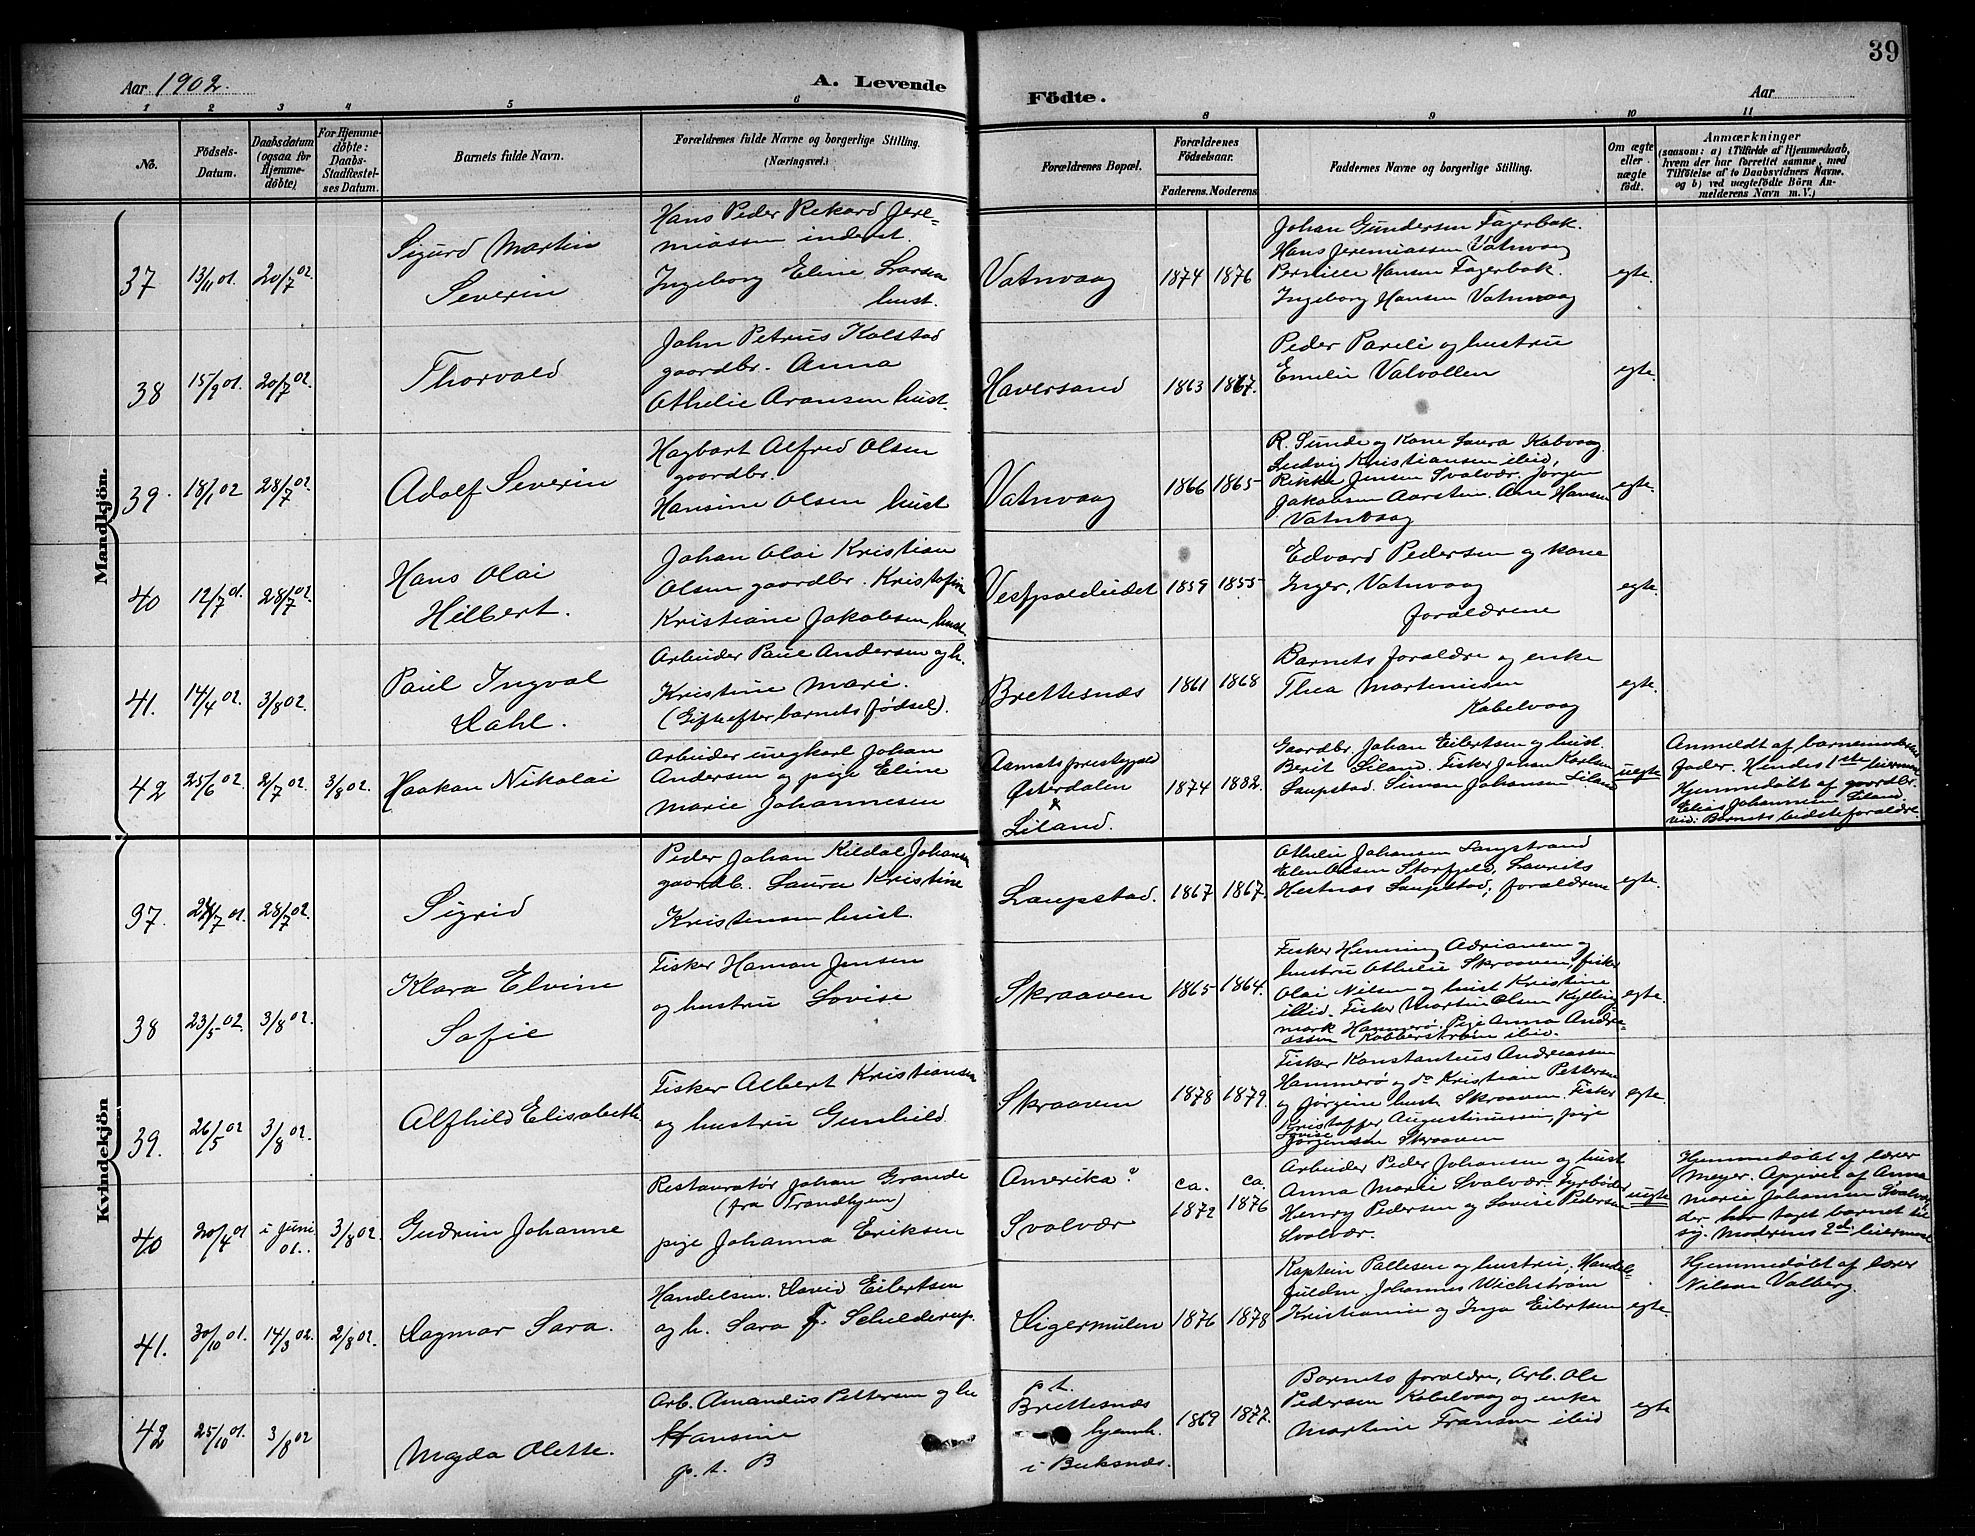 39
Aar 1902. A. Levende Födte. Aar
1 2 3 4 5 6 8 9 10 11
No.
Födsels-
Datum.
Daabsdatum
(ogsaa for
Hjemme-
döbte)
For Hjemme-
döbte:
Daabs-
Stadfœstel-
ses Datum.
Barnets fulde Navn.
Forœldrenes fulde Navne og borgerlige Stilling.
(Næringsvei.)
Forœldrenes Bopæl.
Forœldrenes
Födselsaar.
Faderens. Moderens
Faddernes Navne og borgerlige Stilling.
Om œgte
eller
uœgte
födt.
Anmœrkninger
(saasom: a) i Tilfælde af Hjemmedaab,
hvem der har forrettet samme, med
Tilföielse af to Daabsvidners Navne.
og b) ved uœgtefödte Börn An-
melderens Navn m. V.)
Mandkjön.
37 13/11 01. 20/7 02.
Sigurd Martin
Severin
Hans Peder Rikard Jere-
miassen inderst.
Ingeborg Eline Larsen
hust.
Vatnvaag 1874 1876
Johan Gundersen Fagerbak.
Hans Jeremiassen Vatnvaag
Pernille Hansen Fagerbak.
Ingeborg Hansen Vatnvaag
egte.
38 15/9 01. 20/7 02.
Thorvald
John Petrus Kolstad
gaardbr. Anna
Othelie Aronsen hust.
Haversand 1863 1867.
Peder Pareli og hustru
Emelie Valvollen
egte.
39. 18/1 02 28/7 02.
Adolf Severin
Hagbart Alfred Olsen
gaardbr.
Hansine Olsen hust
Vatnvaag 1866 1865
R. Sunde og Kone Laura Kabvaag
Ludvig Kristiansen ibid,
Rikke Jensen Svolvær, Jørgen
Jakobsen Aarsten. Ane Hansen
Vatnvaag
egte.
40 12/7 01. 28/7 02.
Hans Olai
Hilbert.
Johan Olai Kristian
Olsen gaardbr. Kristofin
Kristiane Jakobsen hust.
Vestpoldeidet 1859 1855
Edvard Pedersen og kone
Inger, Vatnvaag
foraldrene
egte.
41. 14/4 02. 3/8 02.
Paul Ingval
Dahl.
Arbeider Paul Andersen og h.
Kristine Marie.
(Gift efter barnets fødsel).
Brettesnæs 1861 1868
Barnets foraldre og enke
Thea Martinusen
Kabelvaag
egte.
42 25/6 02. 2/7 02. 3/8 02.
Haakan Nikolai
Arbeider ungkarl Johan
Andersen og pige Eline
Marie Johannesen
Aamots præstegjeld
Østerdalen
&
Liland.
1874 1882.
Gaardbr. Johan Eilertsen og hust.
Berit Liland. Fisker Jensen Karlsen
Laupstad. Simon Johansen Liland
uegte
Anmeldt af barnemoderens
fader. Hendes 1ste leiermaal
Hjemmedøbt af gaardbr.
Elias Johannesen Liland.
Vid: Barnets bedsteforaldre.
Kvindekjön
37. 24/7 01. 28/7 02.
Sigrid
Peder Johan Kildal Johansen
gaardb. Laura Kristine
Kristensen hust.
Laupstad. 1867 1867.
Othelie Johansen Langstrand
Elen Olsen Storfjeld, Laurits
Hestnæs Laupstad, foraldrene
egte.
38 23/5 02. 3/8 02.
Klara Elvine
Sofie
Fisker Haman Jensen
og hustru Lovise
Skraaven 1865 1864.
Fisker Henning Adriansen og
hustru Othelie Skraaven, fisker
Olai Nilsen og hust Kristine
ibid. Fisker Martin Olsen Kylling
mark Hammerø. Pige Anna Andre-
assen Kobberstrøm ibid.
egte.
39. 26/5 02 3/8 02.
Alfhild Elisabeth
Fisker Albert Kristiansen
og hustru Gunhild
Skraaven 1878 1879.
Fisker Konstantius Andreassen
Hammerø og do Kristian Pettersen
og Jørgine hust Skraaven. Fisker
Kristoffer Augustinussen, pige
Lovise
Jørgensen Skraaven
egte.
40 20/4 01 i Juni 01. 3/8 02.
Gudrun Johanne
Restauratør Johan Grande
(fra Trondhjem)
pige Johanna Eriksen
Amerika?
Svolvær
ca. 1872 ca. 1876
Arbeider Peder Johansen og hust
Anna Marie Svolvær. Fyrbøder
Henry Pedersen og Lovise Pedersen
Svolvær.
uegte
Hjemmedøbt af lærer
Meyer. Opgivet af Anna
Marie Johansen Svolvær
der har taget barnet til
sig. Moderens 2det leiermaal
41. 30/10 01. 14/3 02. 2/8 02.
Dagmar Sara.
Handelsm. David Eilertsen
og h. Sara F. Schelderup.
Digermulen 1876 1878
Kaptein Pallesen og hustru, Handels-
fuldm Johannes Wickstrøm
Kristiania og Inga Eilertsen
egte
Hjemmedøbt af lærer
Nilsen Valberg.
42 25/10 01. 3/8 02
Magda Olette.
Arb. Amandus Pettersen og hu
Hansine
p. t. B
p. t.
Brettesnæs
hjemh.
i Buksnæs.
1869 1877.
Barnets foraldre, Arb. Ole
Pedersen Kabelvaag og enke
Martine Fransen ibid
egte